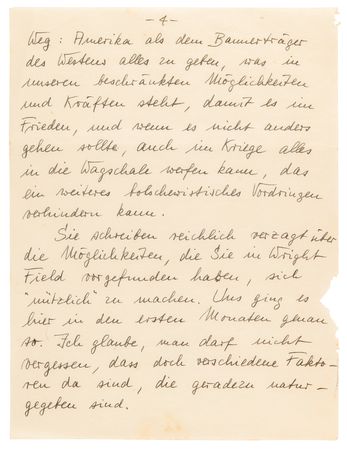 - 4 -
Weg: Amerika als dem Bannerträger
des Westens alles zu geben, was in
unseren beschränkten Möglichkeiten
und Kräften steht, damit es im
Frieden, und wenn es nicht anders
gehen sollte, auch im Kriege alles
in die Wagschale werfen kann, das
ein weiteres bolschewistisches Vordringen
verhindern kann.
Sie schreiben reichlich verzagt über
die Möglichkeiten, die Sie in Wright
Field vorgefunden haben, sich
"nützlich" zu machen. Uns ging es
hier in den ersten Monaten genau
so. Ich glaube, man darf nicht
vergessen, dass doch verschiedene Fakto-
ren da sind, die geradezu natur-
gegeben sind.